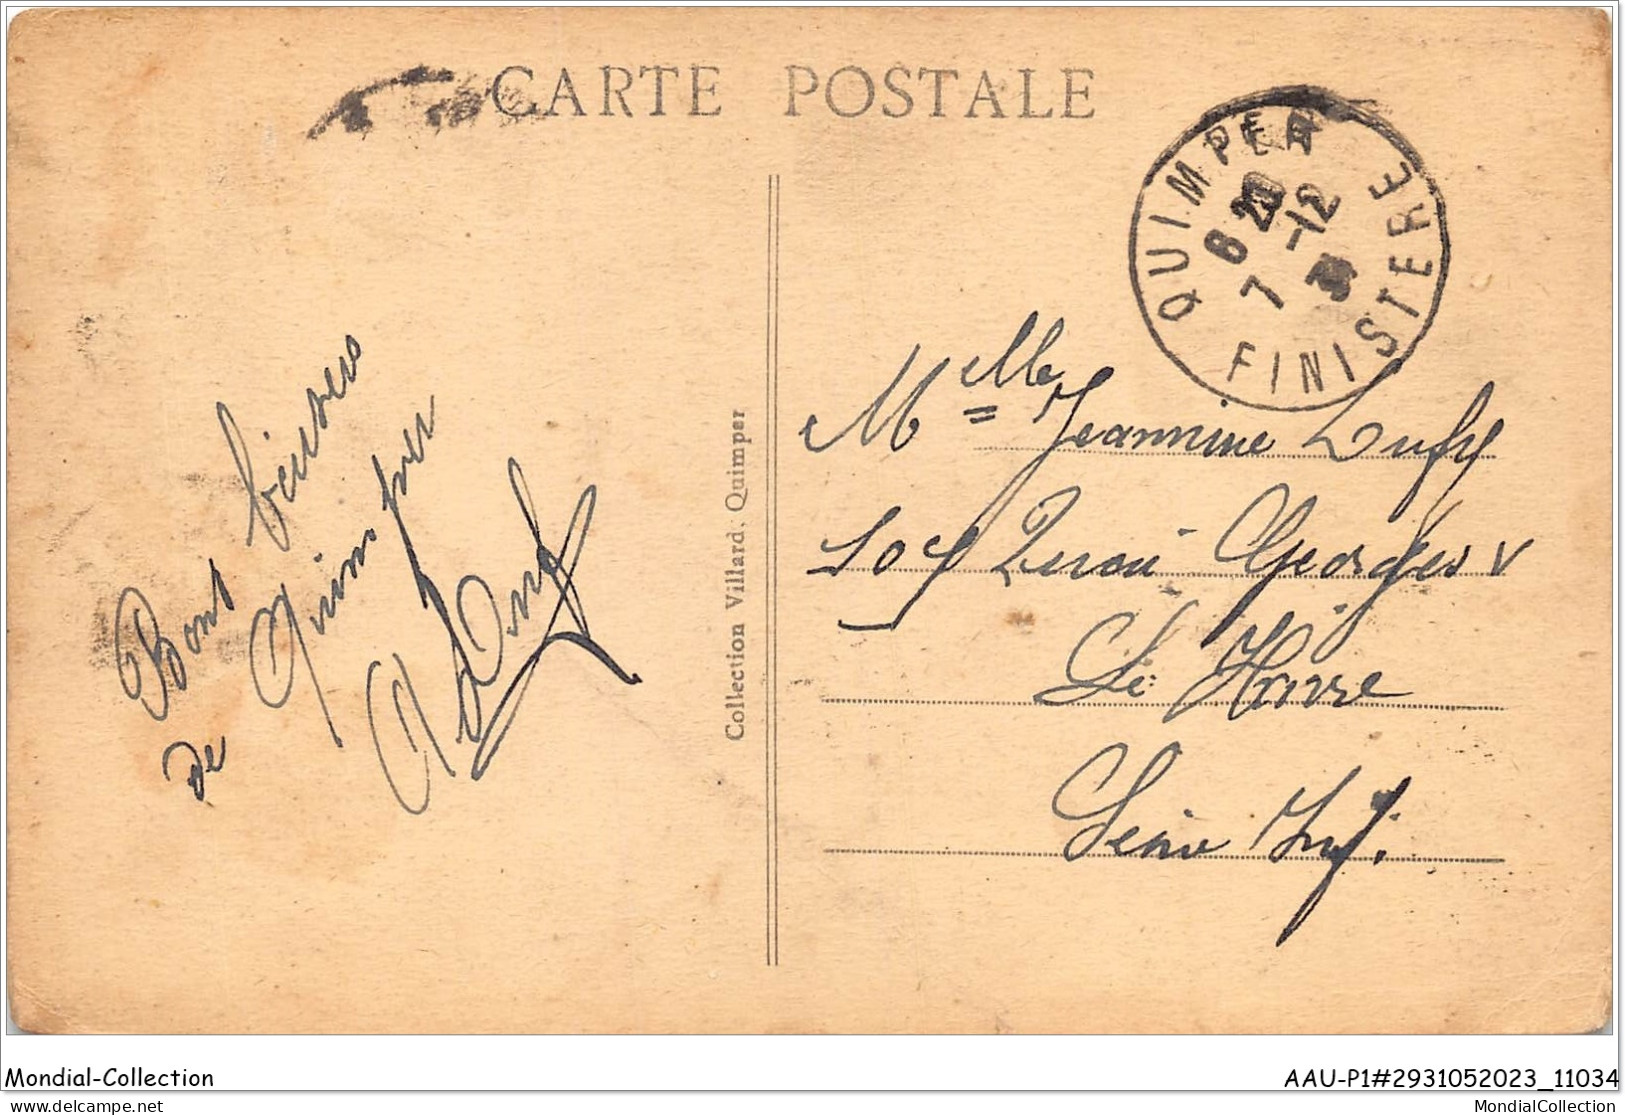 CARTE POSTALE
QUIMPER
7 -12
FINISTERE
Bons baisers
de Quimper
Collection Villard, Quimper
Melle Jeannine Dufy
107 Quai Georges V
Le Havre
Seine Inf.
Mondial-Collection
AAU-P1#2931052023_11034
delcampe.net
MondialCollection